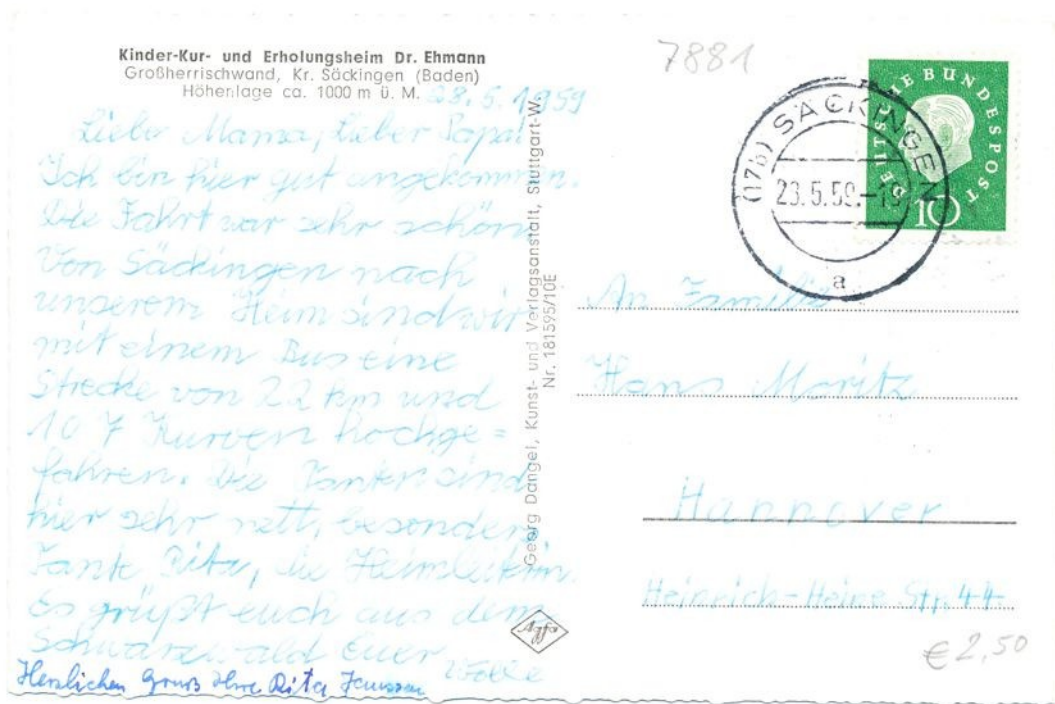 Kinder-Kur- und Erholungsheim Dr. Ehmann
Großherrischwand, Kr. Säckingen (Baden)
Höhenlage ca. 1000 m ü. M.
28.5.1959
Liebe Mama, lieber Papa!
Ich bin hier gut angekommen.
Die Fahrt war sehr schön
Von Säckingen nach
unserem Heim sind wir
mit einem Bus eine
Strecke von 22 km und
107 Kurven hochge=
fahren. Die Tanten sind
hier sehr nett, besonders
Tante Rita, die Heimleiterin.
Es grüßt euch aus dem
Schwarzwald Euer
Wolle
Herzlichen Gruß Ihre Rita Janssen
Georg Dangel, Kunst- und Verlagsanstalt, Stuttgart-W.
Nr. 181595/10E
Agfa
7881
DEUTSCHE BUNDESPOST
10
(17b) SÄCKINGEN
23.5.59.-19
a
An Familie
Hans Moritz
Hannover
Heinrich-Heine Str. 44
€ 2,50